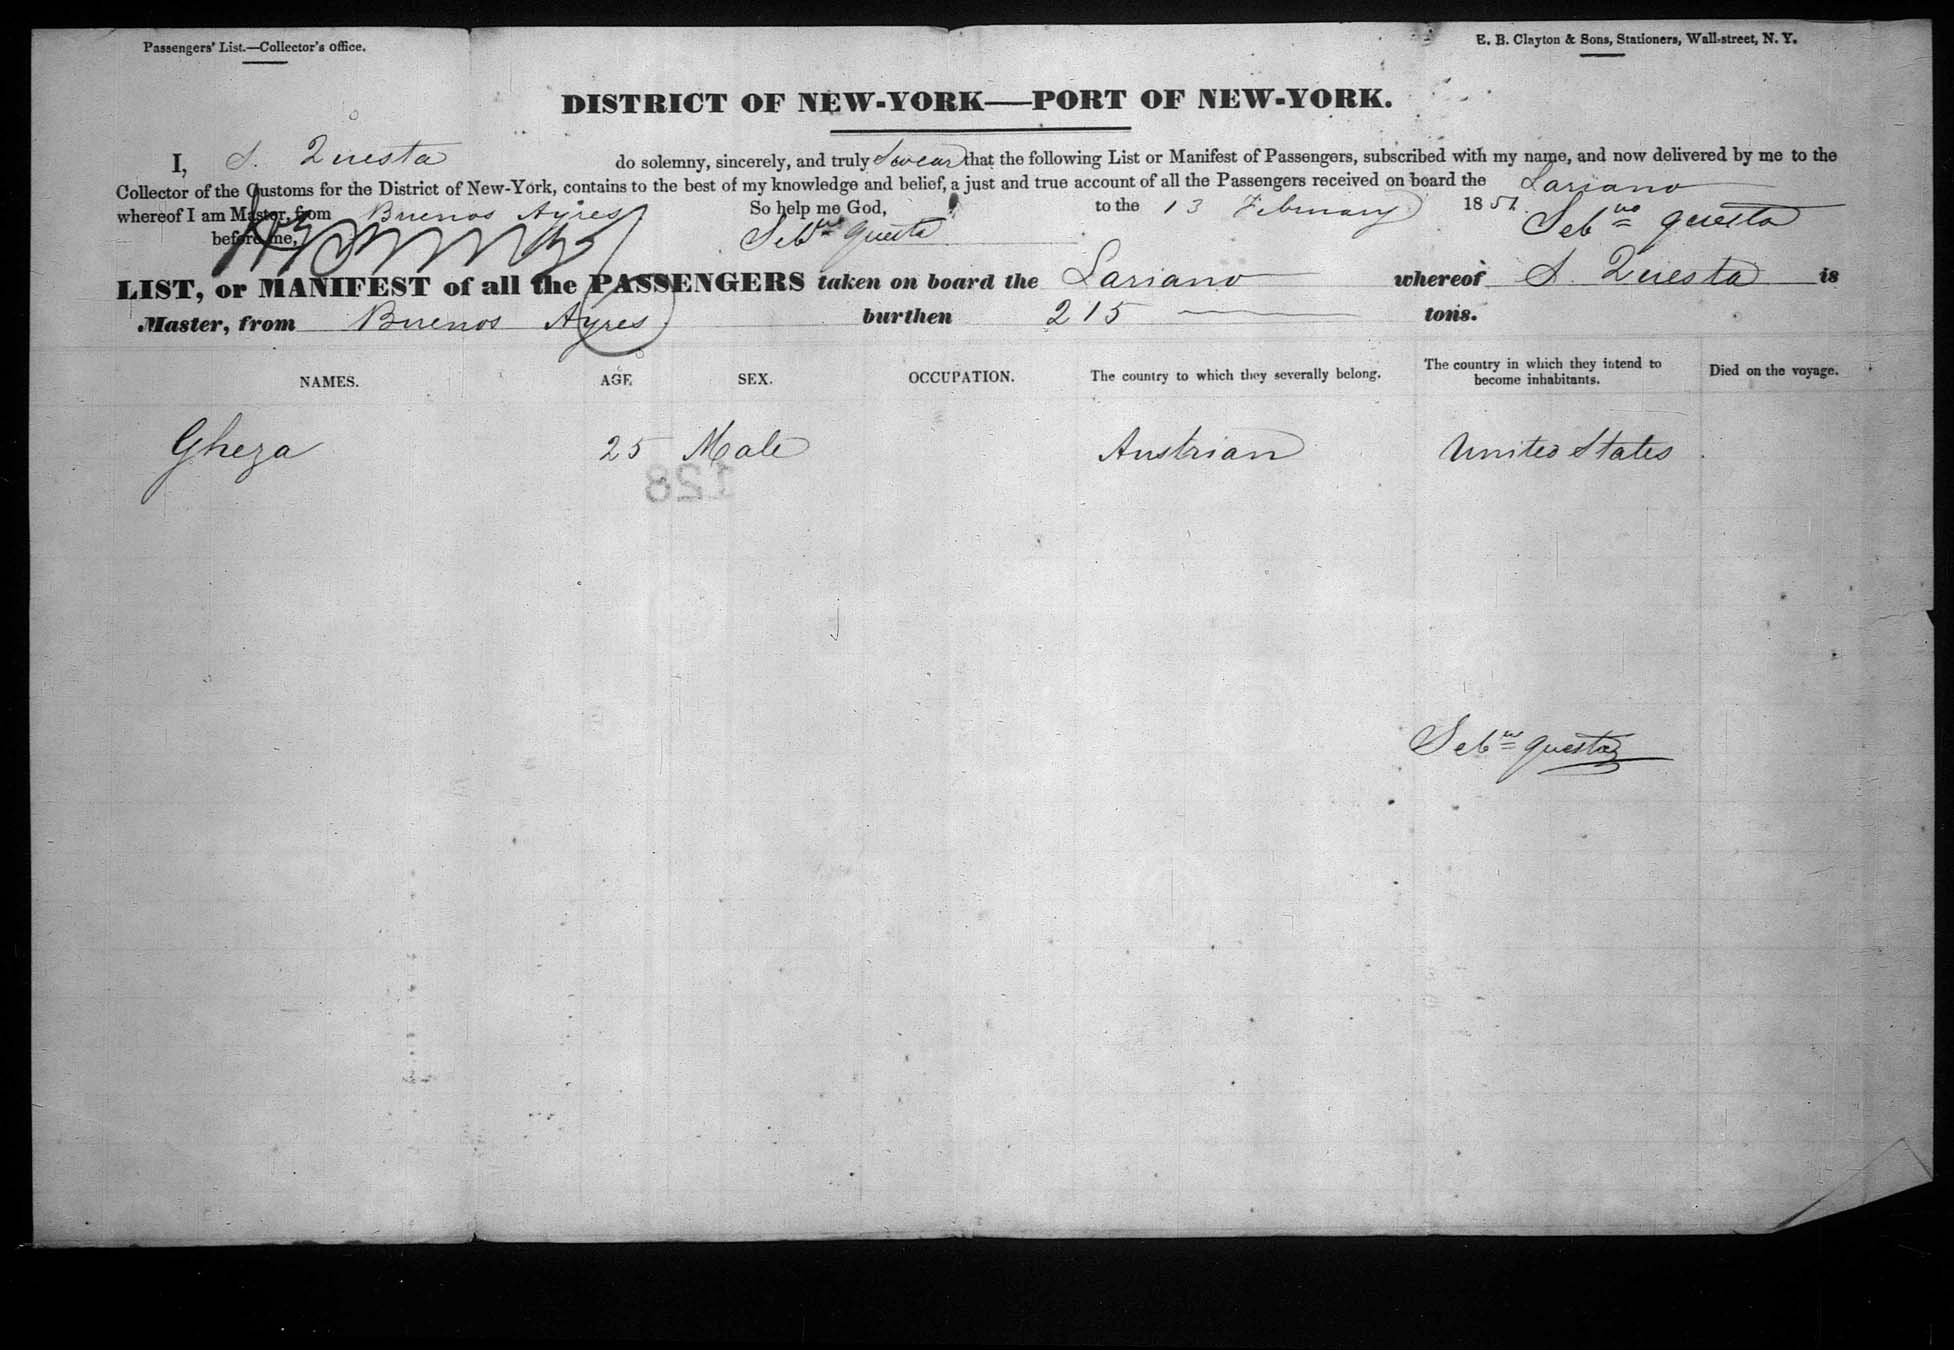 Passengers' List.—Collector's Office.
E. B. Clayton & Sons, Stationers, Wall-street, N. Y.
DISTRICT OF NEW-YORK—PORT OF NEW-YORK.
I, S. Questa do solemny, sincerely, and truly Swear that the following List or Manifest of Passengers, subscribed with my name, and now delivered by me to the
Collector of the Customs for the District of New-York, contains to the best of my knowledge and belief, a just and true account of all the Passengers received on board the Lariano
whereof I am Master, from Buenos Ayres So help me God, to the 13 February 1851.
before me, Sebno questa Sebno questa
LIST, or MANIFEST of all the PASSENGERS taken on board the Lariano whereof S. Questa is
Master, from Buenos Ayres burthen 215 tons.
NAMES. AGE SEX. OCCUPATION. The country to which they severally belong. The country in which they intend to become inhabitants. Died on the voyage.
Gheza 25 Male Austrian United States
128
Sebno questa